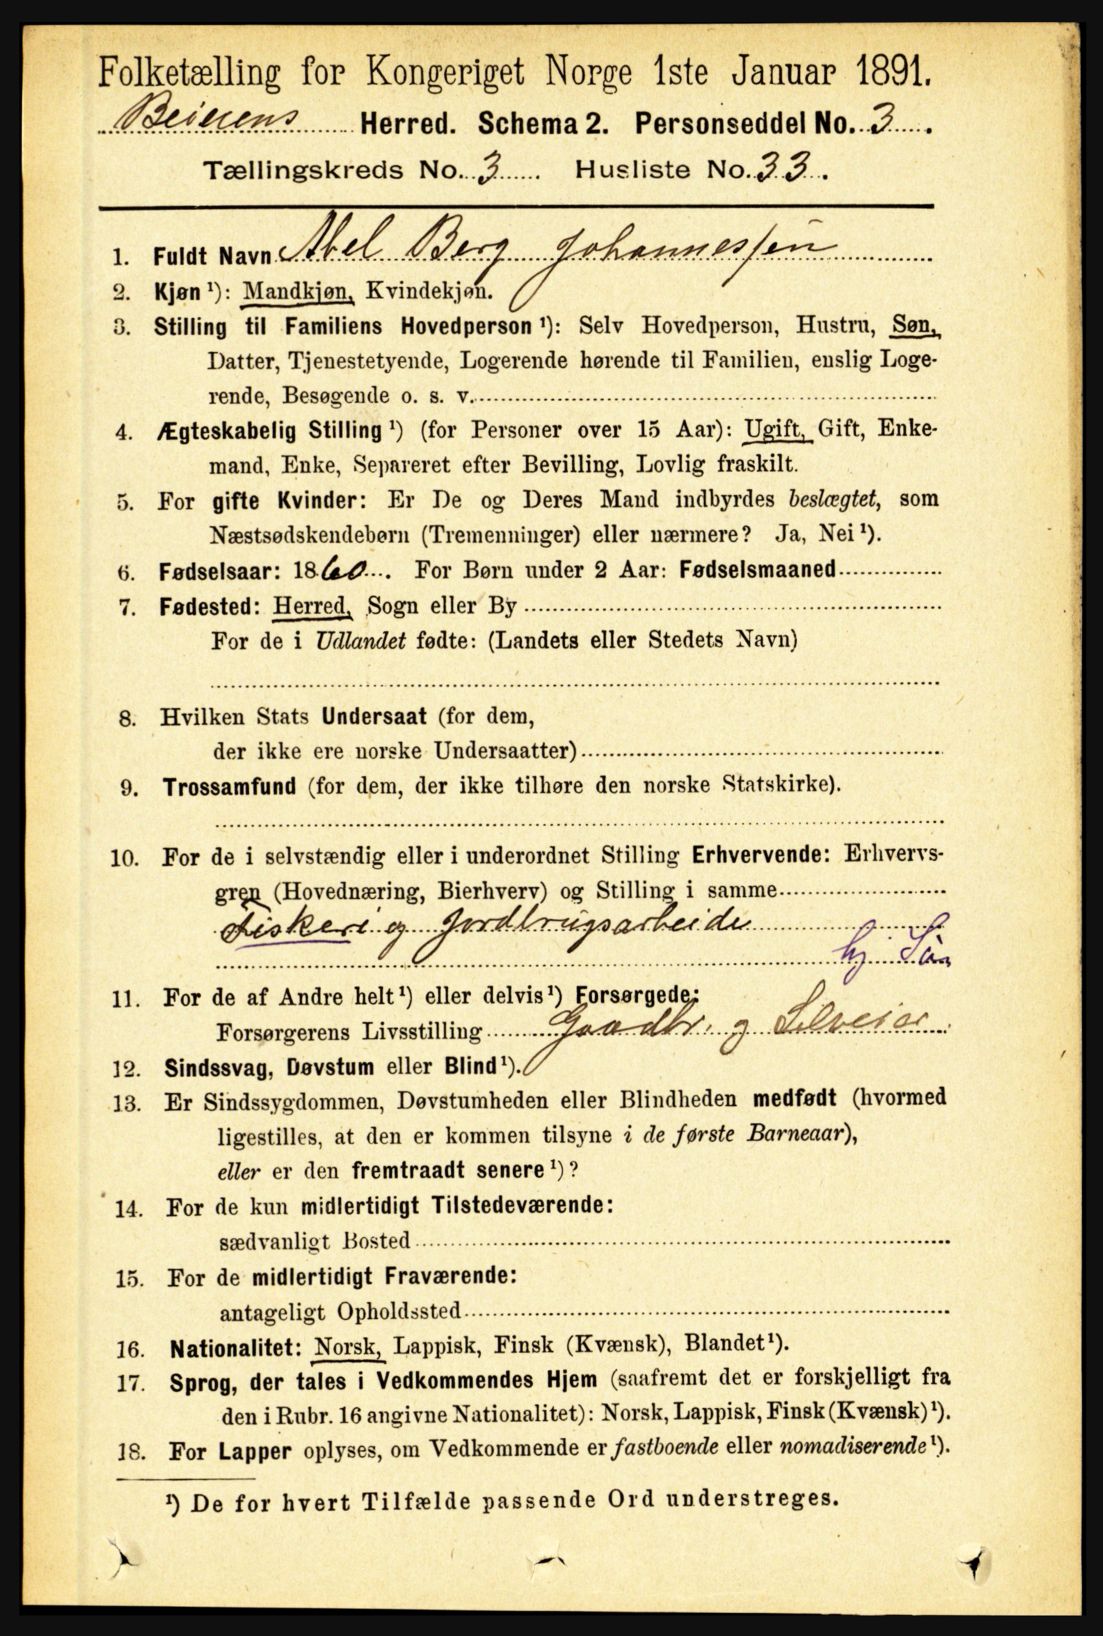 Folketælling for Kongeriget Norge 1ste Januar 1891.
Beierens Herred. Schema 2. Personseddel No. 3.
Tællingskreds No. 3 Husliste No. 33.
1. Fuldt Navn Abel Berg Johannessen
2. Kjøn ¹): Mandkjøn, Kvindekjøn.
3. Stilling til Familiens Hovedperson ¹): Selv Hovedperson, Hustru, Søn,
Datter, Tjenestetyende, Logerende hørende til Familien, enslig Loge-
rende, Besøgende o. s. v.
4. Ægteskabelig Stilling ¹) (for Personer over 15 Aar): Ugift, Gift, Enke-
mand, Enke, Separeret efter Bevilling, Lovlig fraskilt.
5. For gifte Kvinder: Er De og Deres Mand indbyrdes beslægtet, som
Næstsødskendebørn (Tremenninger) eller nærmere? Ja, Nei ¹).
6. Fødselsaar: 1860. For Børn under 2 Aar: Fødselsmaaned
7. Fødested: Herred, Sogn eller By
For de i Udlandet fødte: (Landets eller Stedets Navn)
8. Hvilken Stats Undersaat (for dem,
der ikke ere norske Undersaatter)
9. Trossamfund (for dem, der ikke tilhøre den norske Statskirke).
10. For de i selvstændig eller i underordnet Stilling Erhvervende: Erhvervs-
gren (Hovednæring, Bierhverv) og Stilling i samme
Fiskeri og Jordbrugsarbeide
hj Søn
11. For de af Andre helt ¹) eller delvis ¹) Forsørgede:
Forsørgerens Livsstilling Gaadbr. og Selveier
12. Sindssvag, Døvstum eller Blind ¹).
13. Er Sindssygdommen, Døvstumheden eller Blindheden medfødt (hvormed
ligestilles, at den er kommen tilsyne i de første Barneaar),
eller er den fremtraadt senere ¹)?
14. For de kun midlertidigt Tilstedeværende:
sædvanligt Bosted
15. For de midlertidigt Fraværende:
antageligt Opholdssted
16. Nationalitet: Norsk, Lappisk, Finsk (Kvænsk), Blandet ¹).
17. Sprog, der tales i Vedkommendes Hjem (saafremt det er forskjelligt fra
den i Rubr. 16 angivne Nationalitet): Norsk, Lappisk, Finsk (Kvænsk) ¹).
18. For Lapper oplyses, om Vedkommende er fastboende eller nomadiserende ¹).
¹) De for hvert Tilfælde passende Ord understreges.